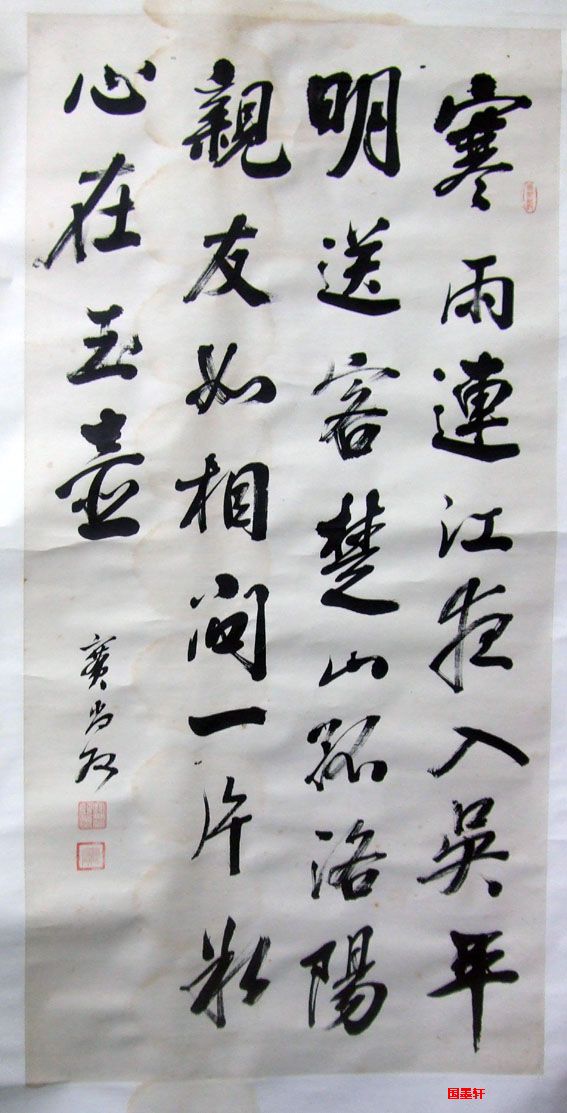 寒雨連江夜入吳平
明送客楚山孤洛陽
親友如相問一片冰
心在玉壺
国墨轩